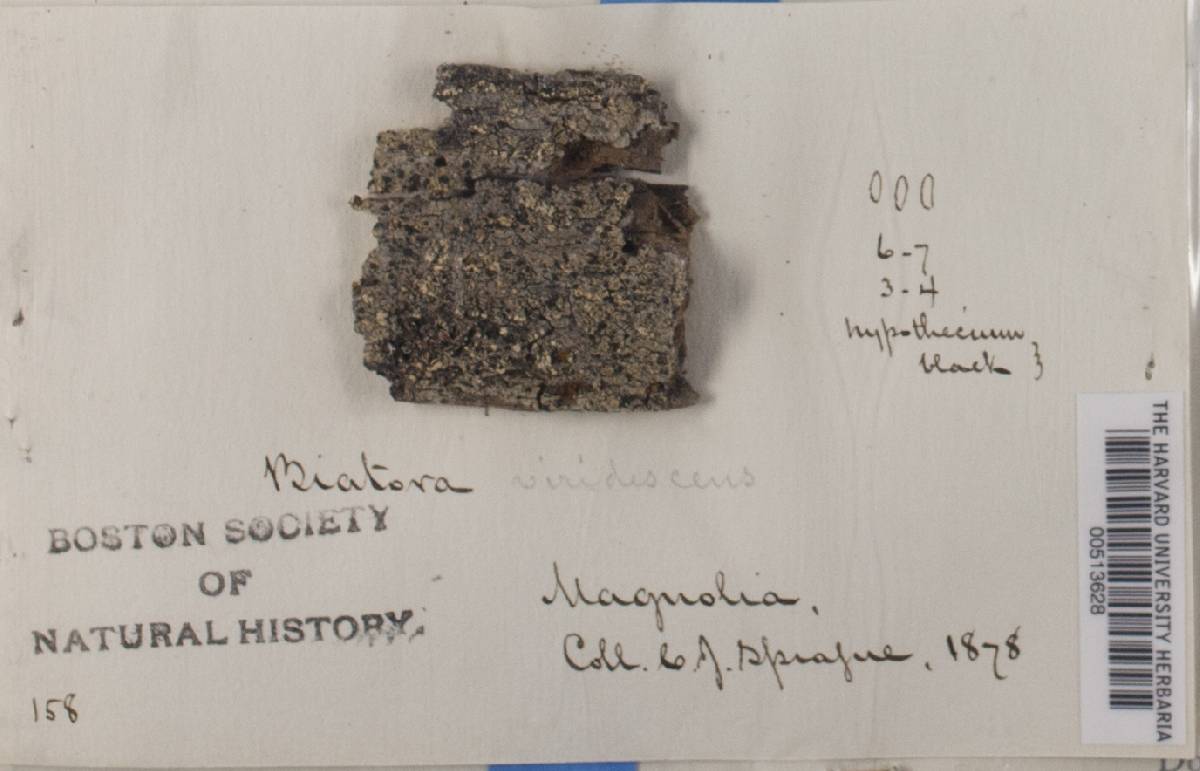 6-7
3-4
hypothecium
black }
Biatora viridescens
BOSTON SOCIETY
OF
NATURAL HISTORY.
Magnolia.
Coll. C. J. Sprague, 1878
158
THE HARVARD UNIVERSITY HERBARIA
00513628